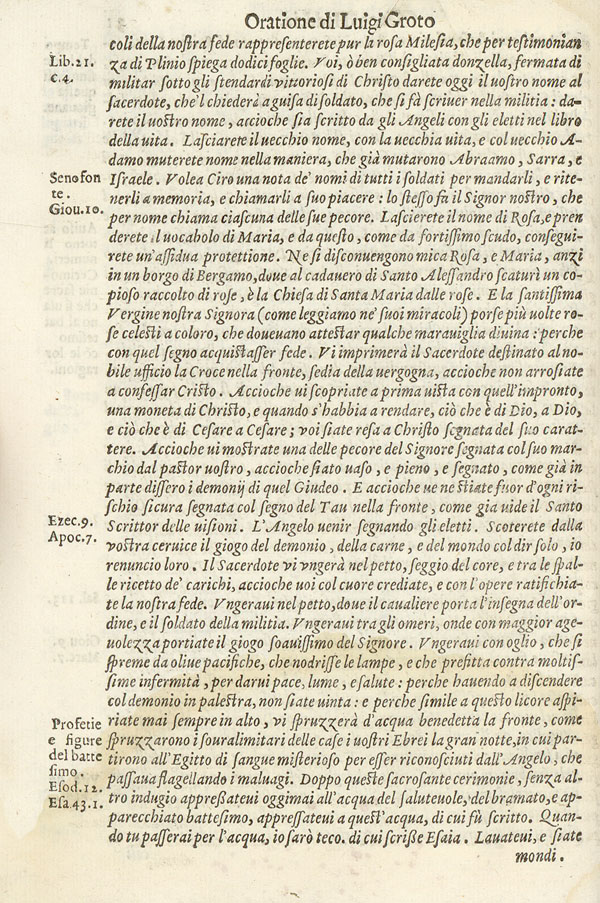 Oratione di Luigi Groto
coli della nostra fede rappresenterete pur la rosa Milesia, che per testimonian
Lib.21.
c.4.
za di Plinio spiega dodici foglie. Voi, ò ben consigliata donzella, fermata di
militar sotto gli stendardi vittoriosi di Christo darete oggi il uostro nome al
sacerdote, che'l chiederà aguisa di soldato, che si fà scriuer nella militia: da-
rete il uostro nome, accioche sia scritto da gli Angeli con gli eletti nel libro
della uita. Lasciarete il uecchio nome, con la uecchia uita, e col uecchio A-
damo muterete nome nella maniera, che già mutarono Abraamo, Sarra, e
Senofon
te.
Giou.10.
Israele. Volea Ciro una nota de' nomi di tutti i soldati per mandarli, e rite-
nerli a memoria, e chiamarli a suo piacere: lo stesso fà il Signor nostro, che
per nome chiama ciascuna delle sue pecore. Lascierete il nome di Rosa, e pren
derete il uocabolo di Maria, e da questo, come da fortissimo scudo, consegui-
rete un'assidua protettione. Ne si disconuengono mica Rosa, e Maria, anzi
in un borgo di Bergamo, doue al cadauero di Santo Alessandro scaturì un co-
pioso raccolto di rose, è la Chiesa di Santa Maria dalle rose. E la santissima
Vergine nostra Signora (come leggiamo ne' suoi miracoli) porse più uolte ro-
se celesti a coloro, che doueuano attestar qualche marauiglia diuina: perche
con quel segno acquistasser fede. Vi imprimerà il Sacerdote destinato al no-
bile ufficio la Croce nella fronte, sedia della uergogna, accioche non arrosiate
a confessar Cristo. Accioche ui scopriate a prima uista con quell'impronto,
una moneta di Christo, e quando s'habbia a rendare, ciò che è di Dio, a Dio,
e ciò che è di Cesare a Cesare; voi siate resa a Christo segnata del suo carat-
tere. Accioche ui mostrate una delle pecore del Signore segnata col suo mar-
chio dal pastor uostro, accioche siate uaso, e pieno, e segnato, come già in
parte dissero i demonij di quel Giudeo. E accioche ue ne stiate fuor d'ogni ri-
schio sicura segnata col segno del Tau nella fronte, come già uide il Santo
Ezec.9.
Apoc.7.
Scrittor delle uisioni. L'Angelo uenir segnando gli eletti. Scoterete dalla
vostra ceruice il giogo del demonio, della carne, e del mondo col dir solo, io
renuncio loro. Il Sacerdote vi vngerà nel petto, seggio del core, e tra le spal-
le ricetto de' carichi, accioche uoi col cuore crediate, e con l'opere ratifichia-
te la nostra fede. Vngeraui nel petto, doue il caualiere porta l'insegna dell'or-
dine, e il soldato della militia. Vngeraui tra gli omeri, onde con maggior age-
uolezza portiate il giogo soauissimo del Signore. Vngeraui con oglio, che si
spreme da oliue pacifiche, che nodrisse le lampe, e che prefitta contra moltis-
sime infermità, per darui pace, lume, e salute: perche hauendo a discendere
col demonio in palestra, non siate uinta: e perche simile a questo licore aspi-
Profetie
e figure
del batte
simo.
Esod.12.
Esa.43.1.
riate mai sempre in alto, vi spruzzerà d'acqua benedetta la fronte, come
spruzzarono i souralimitari delle case i uostri Ebrei la gran notte, in cui par-
tirono all'Egitto di sangue misterioso per esser riconosciuti dall'Angelo, che
passaua flagellando i maluagi. Doppo queste sacrosante cerimonie, senza al-
tro indugio appreßateui oggimai all'acqua del saluteuole, del bramato, e ap-
parecchiato battesimo, appressateui a quest'acqua, di cui fù scritto. Quan-
do tu passerai per l'acqua, io sarò teco. di cui scriße Esaia. Lauateui, e siate
mondi.